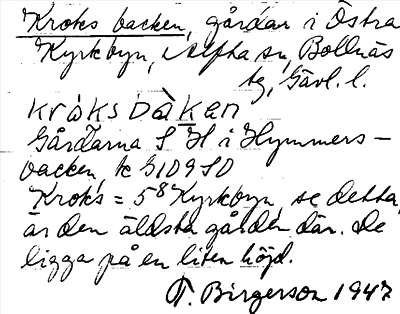 Kroks backen, gårdar i Östra
Kyrkbyn, Alfta sn, Bollnäs
tg, Gävl. l.
kråksbàkan
Gårdarna S H i Hymmers-
backen, k G109SD
Kroks = 5⁸ Kyrkbyn, se detta,
är den äldsta gården där. De
ligga på en liten höjd.
T. Birgerson 1947